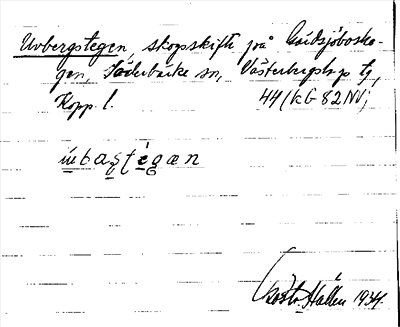 Uvbergstegen, skogsskifte på Gridsjöbosko-
gen, Söderbärke sn, Västerbergslags tg,
Kopp. l. 44/kG 82 NV;
ùbaştègæn
Gösta Hallén 1934.